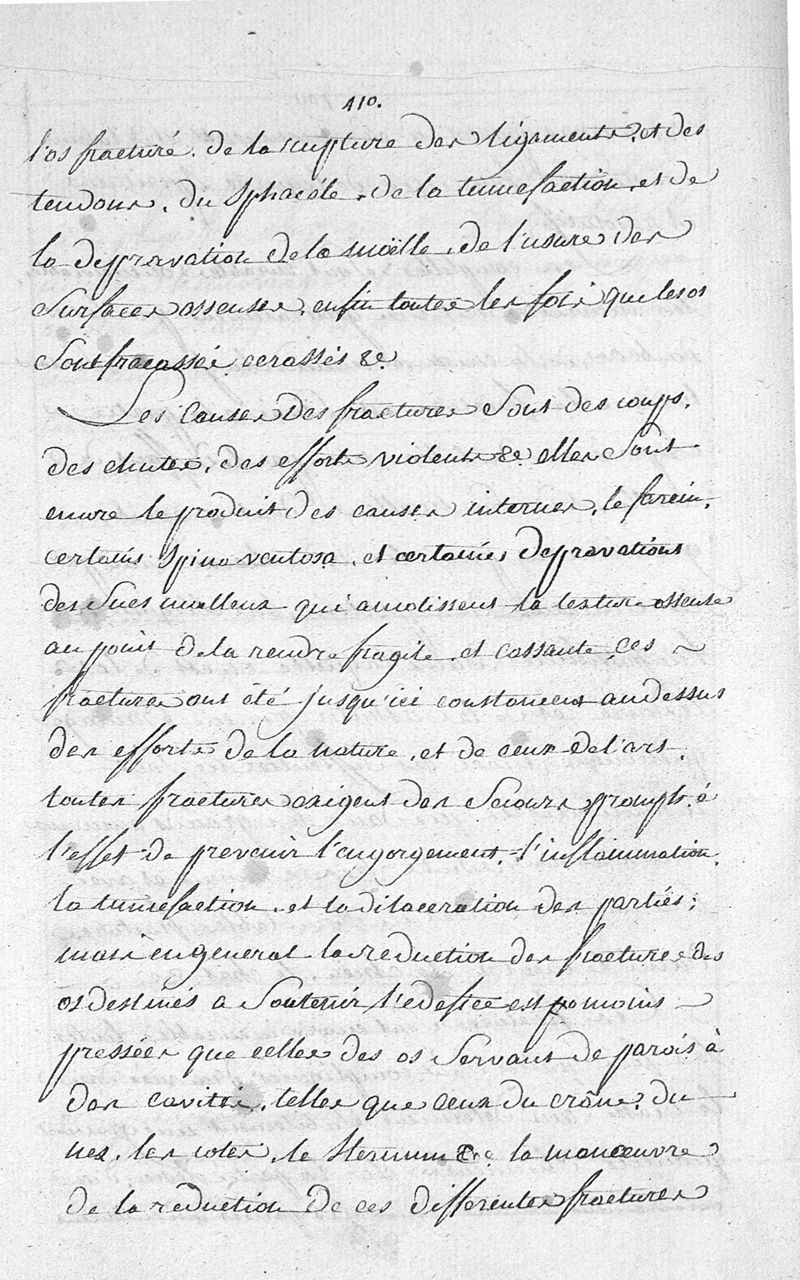 410.
l'os fracturé. de la rupture des ligaments. et des
tendons. du sphacéle. de la tumefaction. et de
la depravation de la moëlle. de l'usure des
surfaces osseuses. enfin toutes les fois que les os
sont fracassés. ecrassés &c
Les causes des fractures sont des coups.
des chutes. des efforts violents &c. elles sont
encore le produit des causes internes. le farcin.
certains spina ventosa. et certaines depravations
des sucs moelleux qui amolissent la texture osseuse
au point de la rendre fragile. et cassante. ces
fractures ont été jusqu'ici constament au dessus
des efforts de la nature. et de ceux de l'art.
toutes fractures exigent des secours prompts. à
l'effet de prevenir l'engorgement. l'inflammation.
la tumefaction. et la dilaceration des parties;
mais en general la reduction des fractures des
os destinés a soutenir l'edifice est moins
pressées que celles des os servant de parois à
des cavités. telles que ceux du crâne. du
nez. les cotes. le sternum &c. la manœuvre
de la reduction de ces differentes fractures